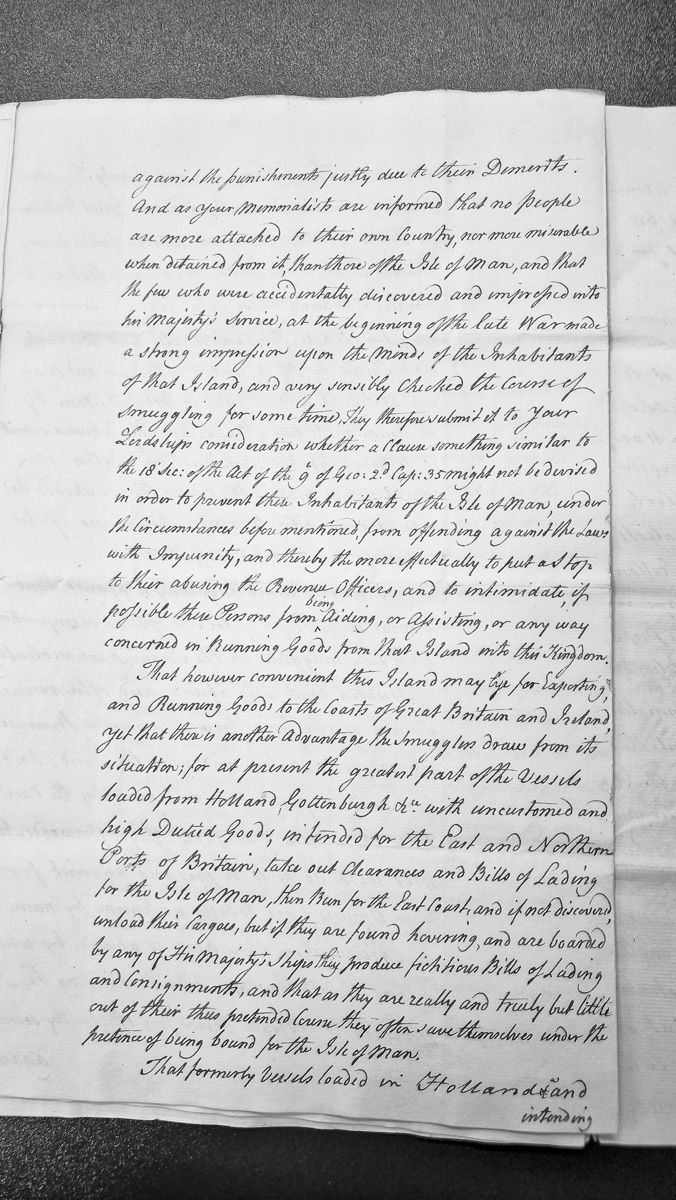 against the punishments justly due to their Demerits.
And as your Memorialists are informed that no People
are more attached to their own Country, nor more miserable
when detained from it, than those of the Isle of Man, and that
the few who were accidentally discovered and impressed into
his Majesty's Service, at the beginning of the late War made
a strong impression upon the Minds of the Inhabitants
of that Island, and very sensibly checked the Course of
Smuggling for some time, They therefore submit it to Your
Lordships consideration whether a Clause something similar to
the 18th Sec: of the Act of the 9th of Geo: 2d Cap: 35 might not be devised
in order to prevent these Inhabitants of the Isle of Man, under
the Circumstances before mentioned, from offending against the Laws
with Impunity, and thereby the more effectually to put a Stop
to their abusing the Revenue Officers, and to intimidate, if
possible these Persons from being Aiding, or Assisting, or any way
concerned in Running Goods from that Island into this Kingdom.
That however convenient this Island may lye for Exporting,
and Running Goods to the Coasts of Great Britain and Ireland,
yet that there is another Advantage the Smugglers draw from its
situation; for at present the greatest part of the Vessels
loaded from Holland, Gottenburgh &ca. with uncustomed and
high Dutied Goods, intended for the East and Northern
Ports of Britain, take out Clearances and Bills of Lading
for the Isle of Man, then Run for the East Coast, and if not discovered,
unload their Cargoes, but if they are found hovering, and are boarded
by any of His Majesty's Ships they produce fictitious Bills of Lading
and Consignments, and that as they are really and truely but little
out of their thus pretended Course they often save themselves under the
pretence of being bound for the Isle of Man.
That formerly Vessels loaded in Holland &ca and
intending